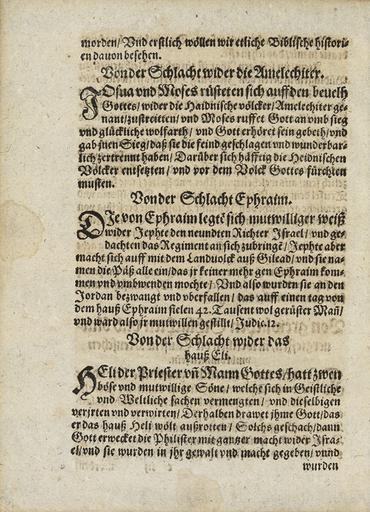 morden/ Vnd erstlich wöllen wir etliche Biblische histori-
en dauon besehen.
Von der Schlacht wider die Amelechiter.
JOsua vnd Moses rüsteten sich auff den beuelh
Gottes/ wider die Haidnische völcker/ Amelechiter ge-
nant/ zustreitten/ vnd Moses ruffet Gott an vmb sieg
vnd glückliche wolfarth/ vnd Gott erhöret sein gebeth/ vnd
gab jnen Sieg/ daß sie die feind geschlagen vnd wunderbar-
lich zertrennt haben/ Darüber sich häfftig die Heidnischen
Völcker entsetzten/ vnd vor dem Volck Gottes fürchten
musten.
Von der Schlacht Ephraim.
DJe von Ephraim legte sich mutwilliger weiß
wider Jephte den neundten Richter Jsrael/ vnd ge-
dachten das Regiment an sich zubringē/ Jephte aber
macht sich auff mit dem Landuolck auß Gilead/ vnd sie na-
men die Päß alle ein/ das jr keiner mehr gen Ephraim kom-
men vnd vmbwenden mochte/ Vnd also wurden sie an den
Jordan bezwangt vnd vberfallen/ das auff einen tag von
dem hauß Ephraim fielen 42. Tausent wol gerüster Mañ/
vnd ward also jr mutwillen gestilt/ Judic. 12.
Von der Schlacht wider das
hauß Eli.
HEli der Priester vñ Mann Gottes/ hatt zwen
böse vnd mutwillige Söne/ welche sich in Geistliche
vnd Weltliche sachen vermengten/ vnd dieselbigen
verjrten vnd verwirten/ Derhalben drawet jhme Gott/ das
er das hauß Heli wölt außrotten/ Solchs geschach/ dann
Gott erwecket die Philister mit gantzer macht wider Jsra-
el/ vnd sie wurden in jhr gewalt vnd macht gegeben/ vnnd
wurden